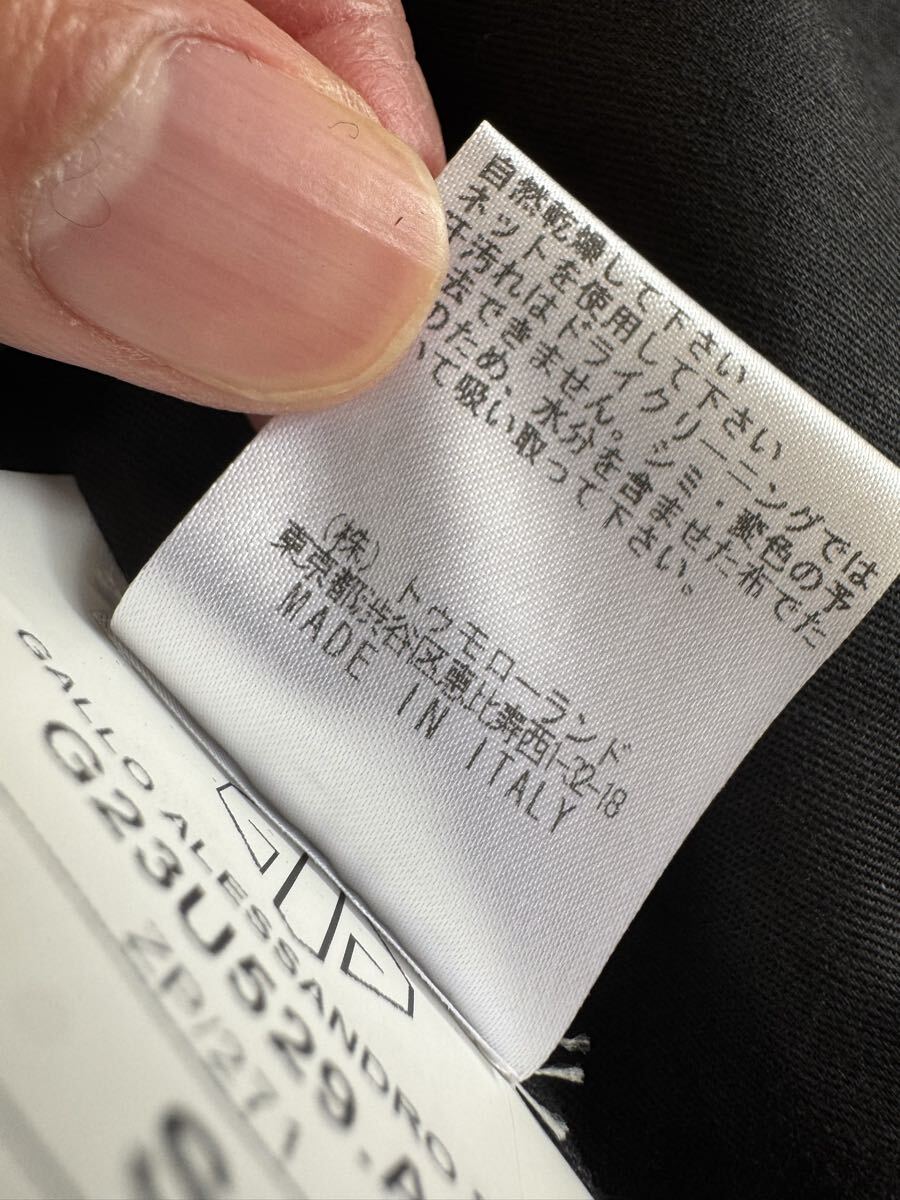 自然乾燥して下さい
ネットを使用して下さい
汗汚れはドライクリーニングでは
去できません。シミ・変色の予
のため、水分を含ませた布でた
いて吸い取って下さい。
(株)トゥモローランド
東京都渋谷区恵比寿西1-32-18
MADE IN ITALY
GALLO ALESSANDRO
G23U529.A
ZP127